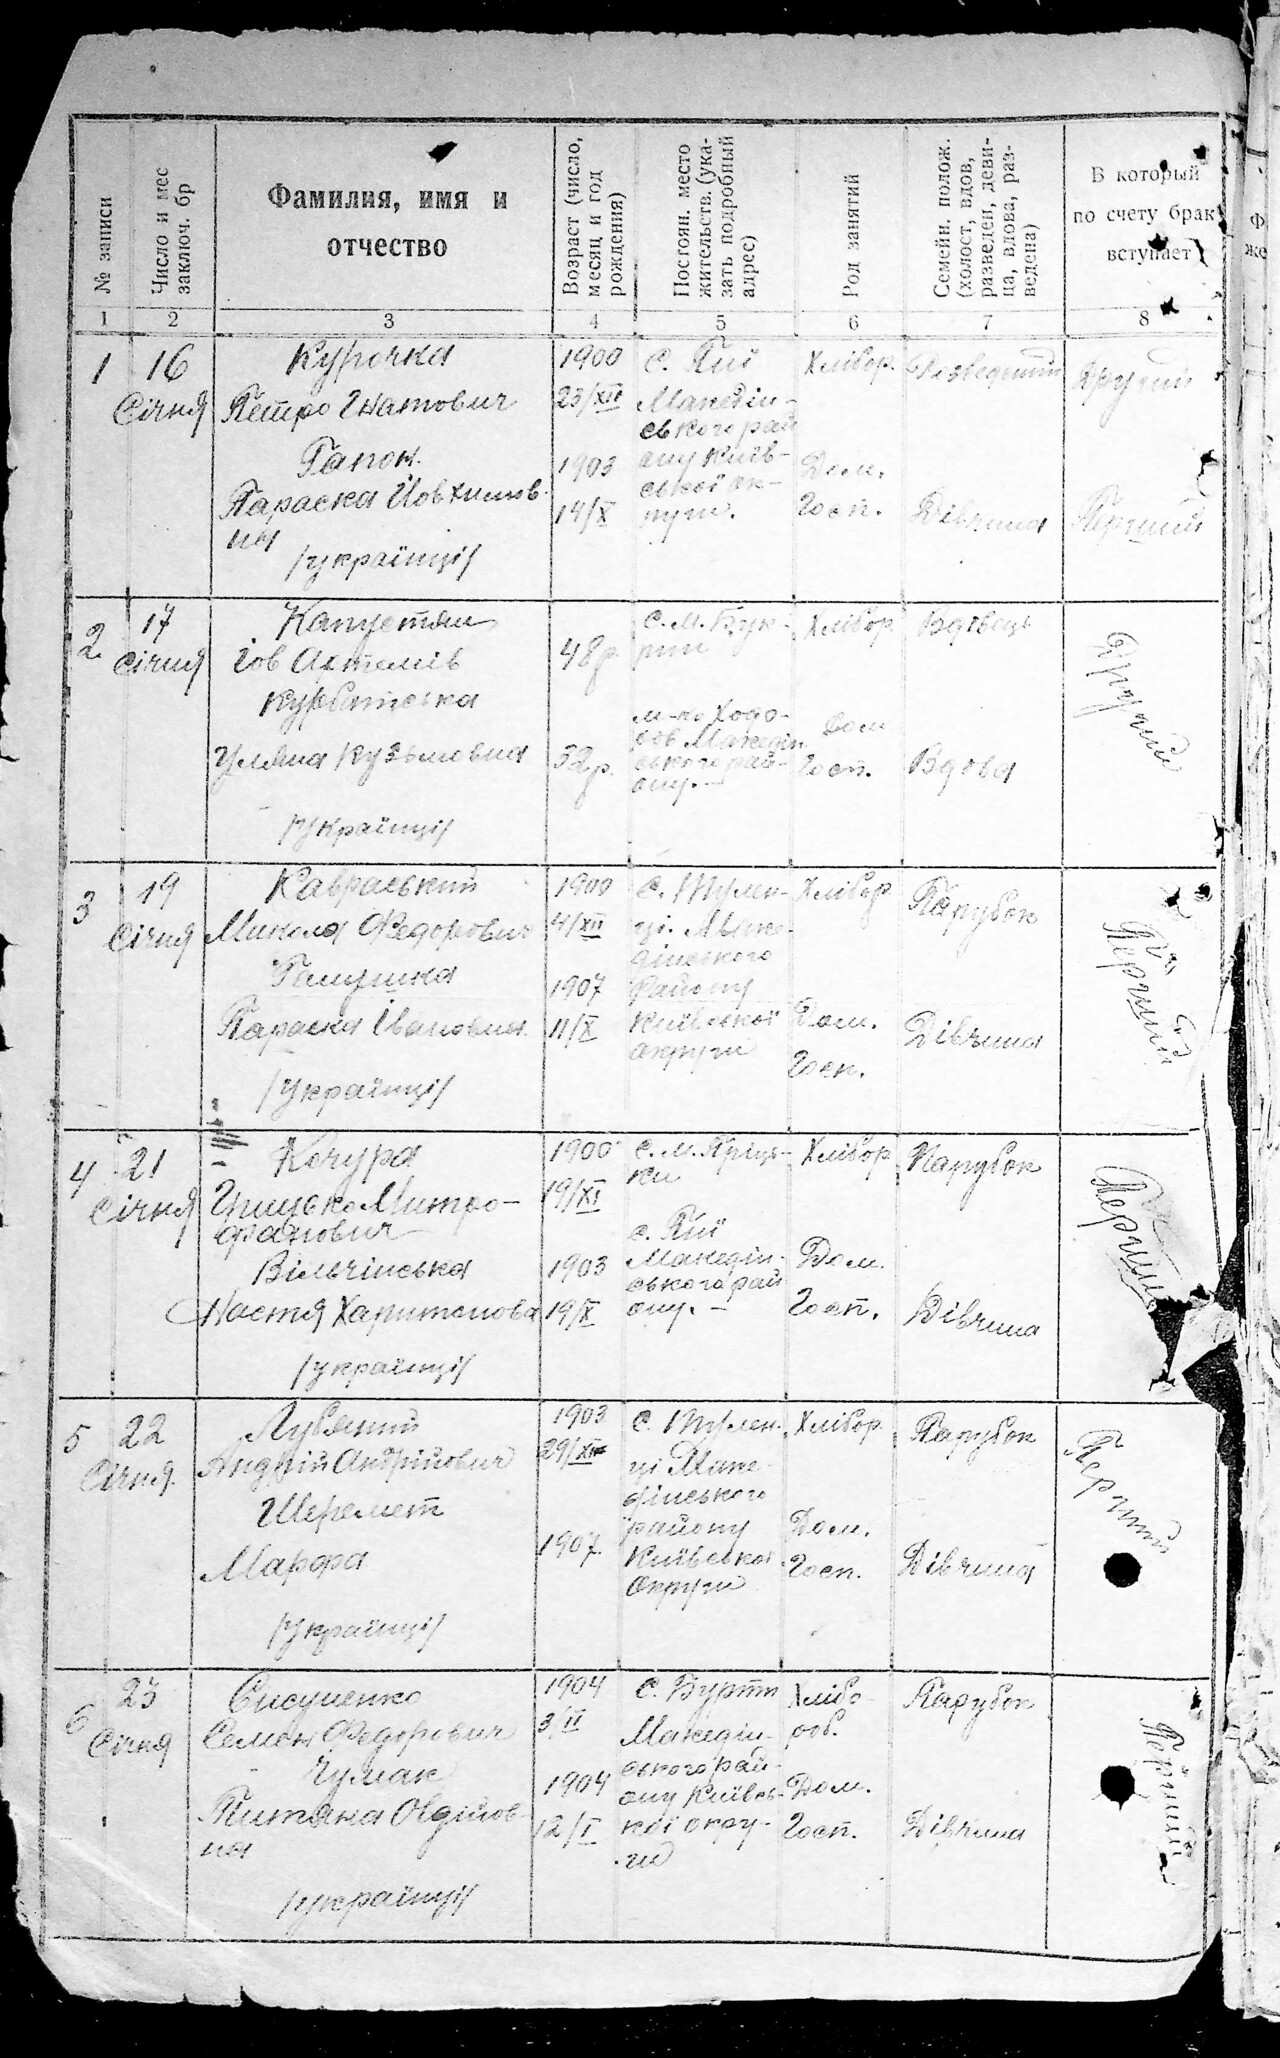 № записи
Число и мес
заключ. бр
Фамилия, имя и
отчество
Возраст (число,
месяц и год
рождения)
Постоян. место
жительств. (ука-
зать подробный
адрес)
Род занятий
Семейн. полож.
(холост, вдов,
разведен, деви-
ца, вдова, раз-
ведена)
В который
по счету брак
вступает
1 2 3 4 5 6 7 8
1
16
Січня
Курочка
Петро Гнатович
Гапон
Параска Йовхимов-
на
/українці/
1900
23/XII
1903
14/X
с. Пії
Македон-
ського рай
ону Київ-
ської ок-
руги.
Хлібор.
Дом.
Госп.
Розведений
Дівчина
Другий
Перший
2
17
Січня
Капустян
Іов Артемів
Курбатська
Уляна Кузьмовна
/Українці/
48 р.
32 р.
с. М. Бук-
рин
м-ко Ходо-
ров Македон
ського рай-
ону. —
Хлібор
Дом
Госп.
Вдовець
Вдова
Другий
3
19
Січня
Кавраський
Микола Федорович
Галушка
Параска Івановна
/Українці/
1900
4/XII
1907
11/X
с. Тулин-
ці. Маке-
дінського
Району
Київської
округи
Хлібор
Дом.
Госп.
Парубок
Дівчина
Перший
4
21
Січня
Кочура
Грицько Митро-
фанович
Вільчінська
Настя Харитонова
/українці/
1900
19/XI
1903
19/X
с. М. Пріць-
ки
с. Пії
Македін-
ського рай
ону. —
Хлібор
Дом.
Госп.
Парубок
Дівчина
Перший
5
22
Січня.
Лубяний
Андрій Андрійович
Шеремет
Марфа
/Українці/
1903
29/XII
1907
с. Тулен-
ці Маке-
дінського
району
Київської
Округи
Хлібор
Дом.
Госп.
Парубок
Дівчина
Перший
6
23
Січня
Семон Федорович
Чумак
Титяна Овдійов-
на
/українці/
1904
3/II
1904
12/I
с. Буртн
Македін-
ського рай-
ону Київсь-
кої окру-
ги
Хлібо-
роб.
Дом.
Госп.
Парубок
Дівчина
Перший